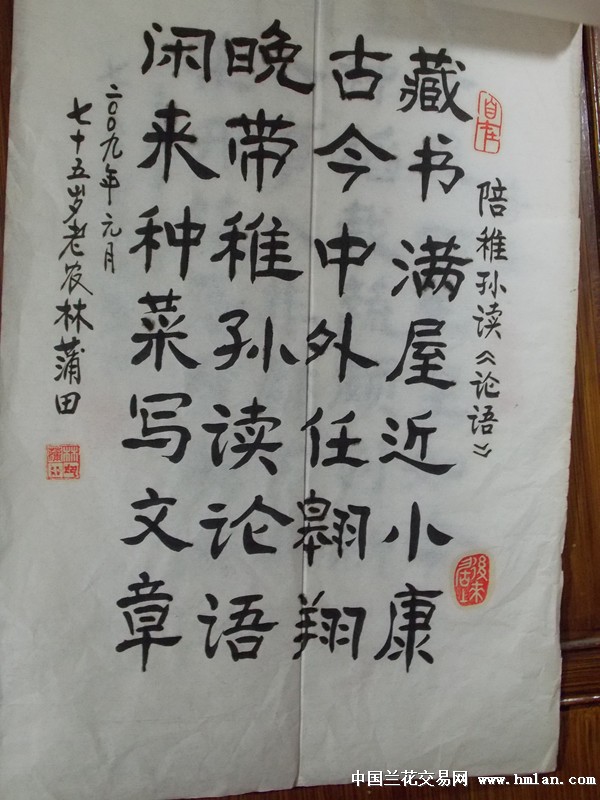 陪稚孙读《论语》
藏书满屋近小康
古今中外任翱翔
晚带稚孙读论语
闲来种菜写文章
二〇〇九年元月
七十五岁老农林蒲田
後来居上
中国兰花交易网 www.hmlan.com